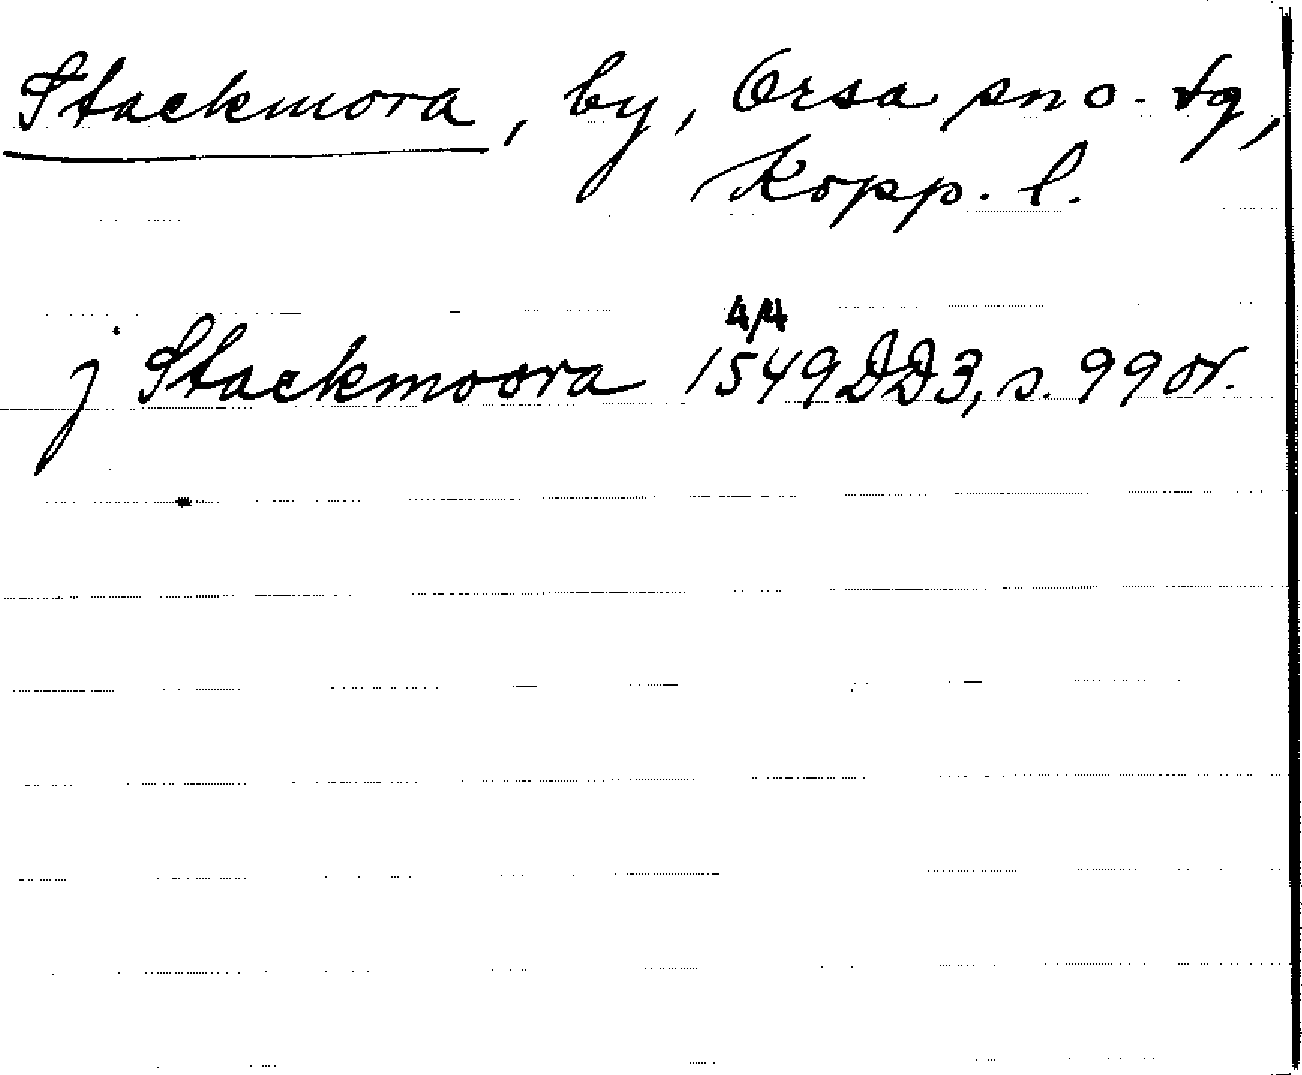 Stackmora, by, Orsa sn o. tg,
Kopp. l.
4/4
j Stackmoora 1549 DD3, s. 99 or.